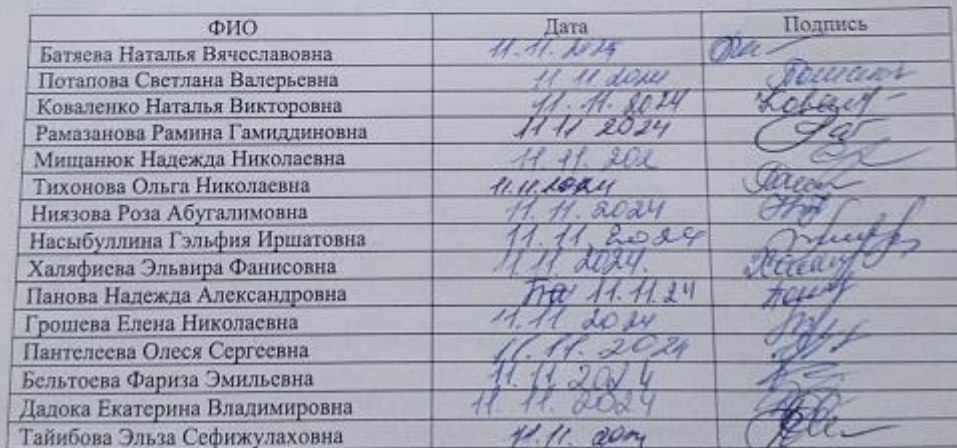 ФИО Дата Подпись
Батяева Наталья Вячеславовна 11.11.2024
Потапова Светлана Валерьевна 11 11 2024
Коваленко Наталья Викторовна 11.11.2024
Рамазанова Рамина Гамиддиновна 11 11 2024
Мищанюк Надежда Николаевна 11.11.202
Тихонова Ольга Николаевна 11.11.2024
Ниязова Роза Абугалимовна 11.11.2024
Насыбуллина Гэльфия Иршатовна 11.11.2024
Халяфиева Эльвира Фанисовна 11.11.2024.
Панова Надежда Александровна 11.11.24
Грошева Елена Николаевна 11.11 2024
Пантелеева Олеся Сергеевна 11.11.2024
Бельтоева Фариза Эмильевна 11.11 2024
Дадока Екатерина Владимировна 11.11.2024
Тайибова Эльза Сефижулаховна 11.11.